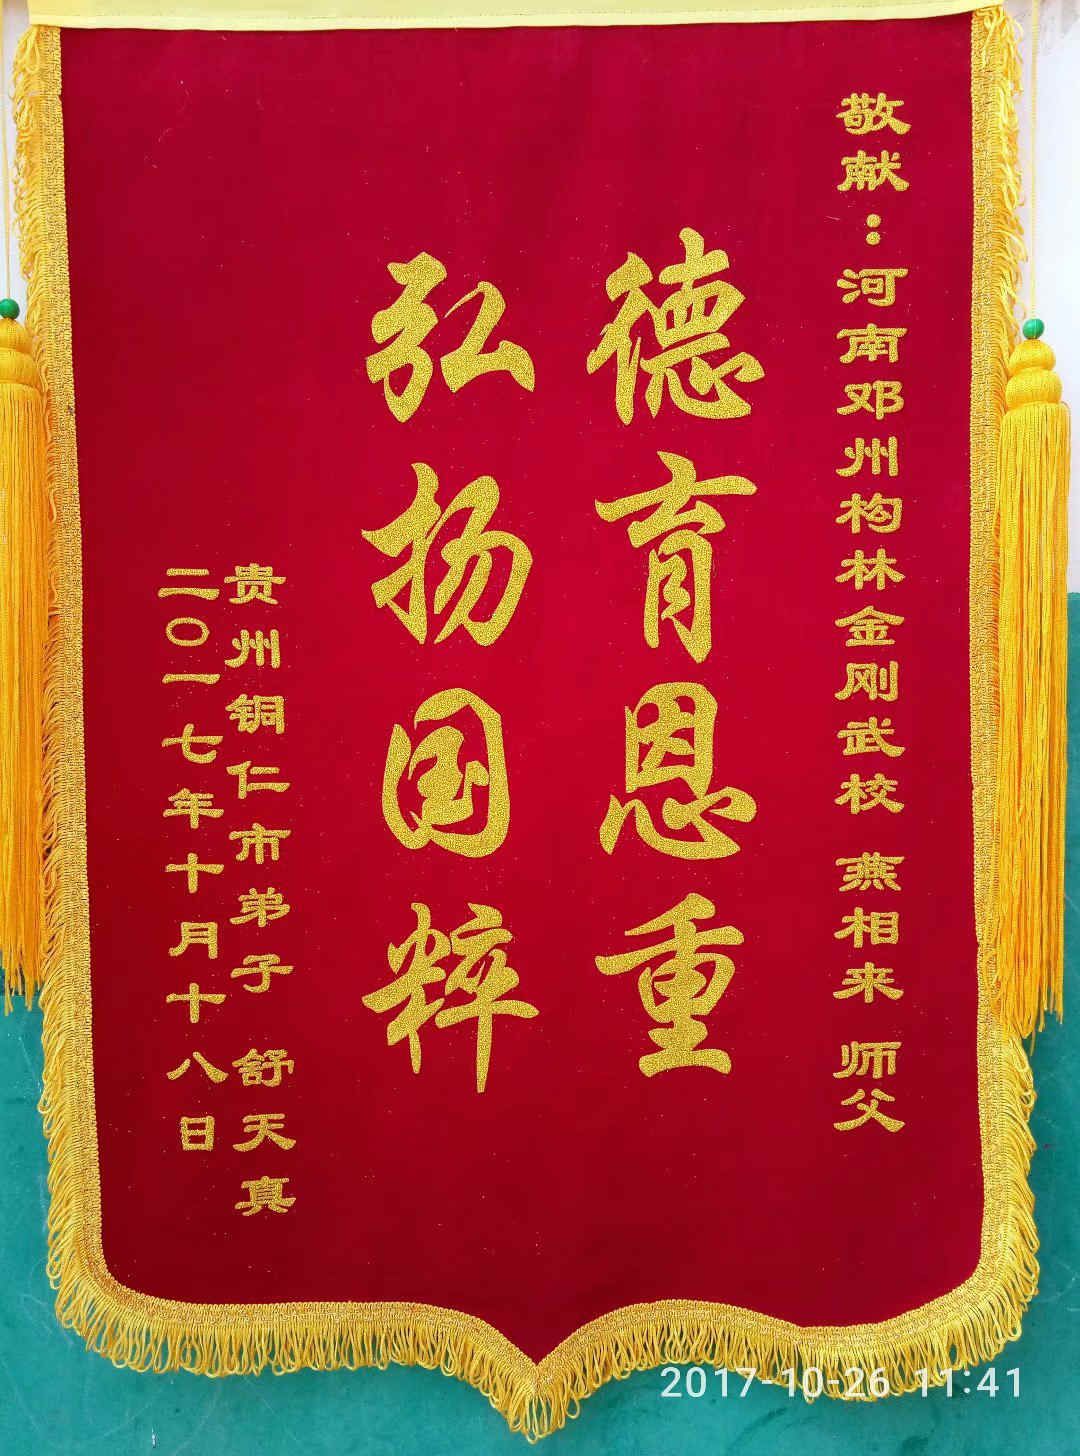 敬献：河南邓州构林金刚武校 燕相来 师父
德育恩重
弘扬国粹
贵州铜仁市弟子 舒天真
二〇一七年十月十八日
2017-10-26 11:41